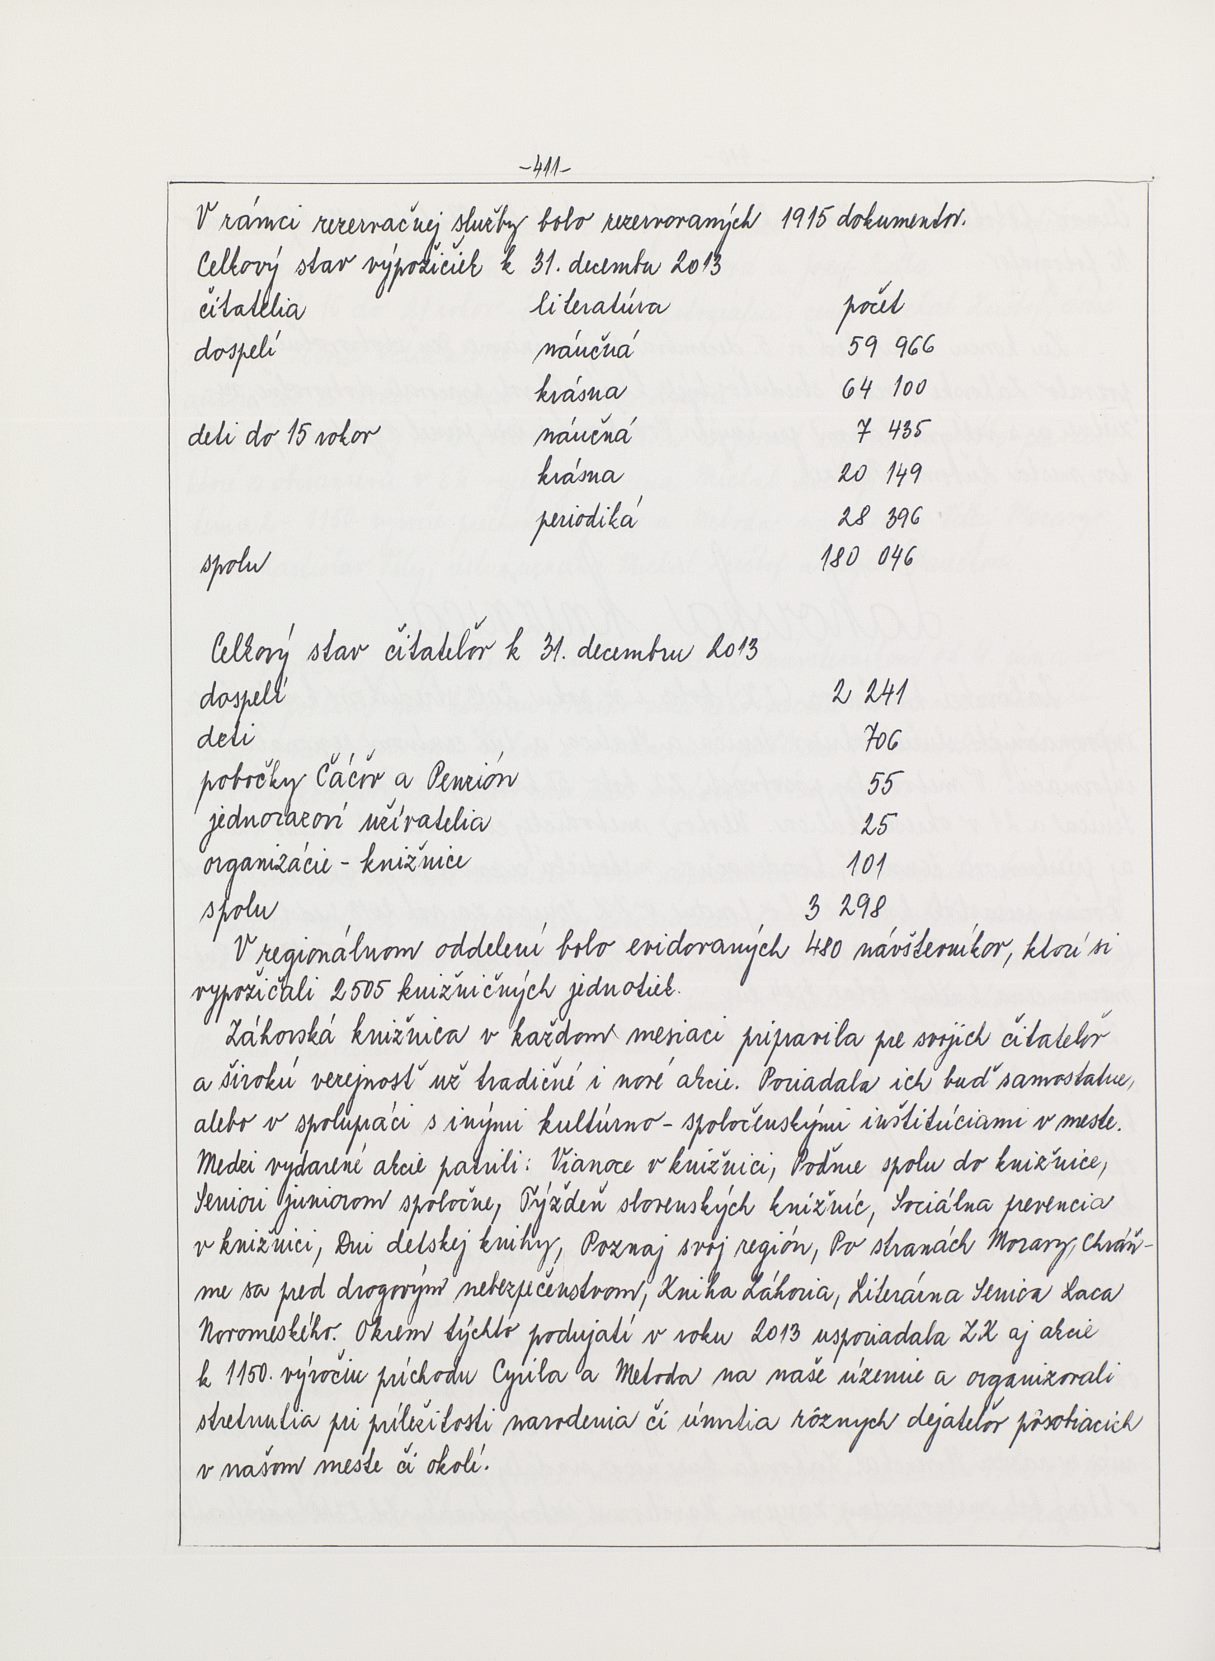 -411-
V rámci rezervačnej služby bolo rezervovaných 1915 dokumentov.
Celkový stav výpožičiek k 31. decembu 2013
čitatelia literatúra počet
dospelí náučná 59 966
krásna 64 100
deti do 15 rokov náučná 7 435
krásna 20 149
periodiká 28 396
spolu 180 046
Celkový stav čitateľov k 31. decembru 2013
dospelí 2 241
deti 706
pobočky Čáčov a Penzión 55
jednorazoví užívatelia 25
organizácie - knižnice 101
spolu 3 298
V regionálnom oddelení bolo evidovaných 480 návštevníkov, ktorí si
vypožičali 2505 knižničných jednotiek.
Záhorská knižnica v každom mesiaci pripravila pre svojich čitateľov
a širokú verejnosť už tradičné i nové akcie. Poriadala ich buď samostatne,
alebo v spolupráci s inými kultúrno - spoločenskými inštitúciami v meste.
Medzi vydarené akcie patrili: Vianoce v knižnici, Poďme spolu do knižnice,
Seniori juniorom spoločne, Týždeň slovenských knižníc, Sociálna prevencia
v knižnici, Dni detskej knihy, Poznaj svoj región, Po stranách Moravy, Chráň-
me sa pred drogovým nebezpečenstvom, Kniha Záhoria, Literárna Senica Laca
Novomeského. Okrem týchto podujatí v roku 2013 usporiadala ZK aj akcie
k 1150. výročiu príchodu Cyrila a Metoda na naše územie a organizovali
stretnutia pri príležitosti narodenia či úmrtia rôznych dejateľov pôsobiacich
v našom meste či okolí.